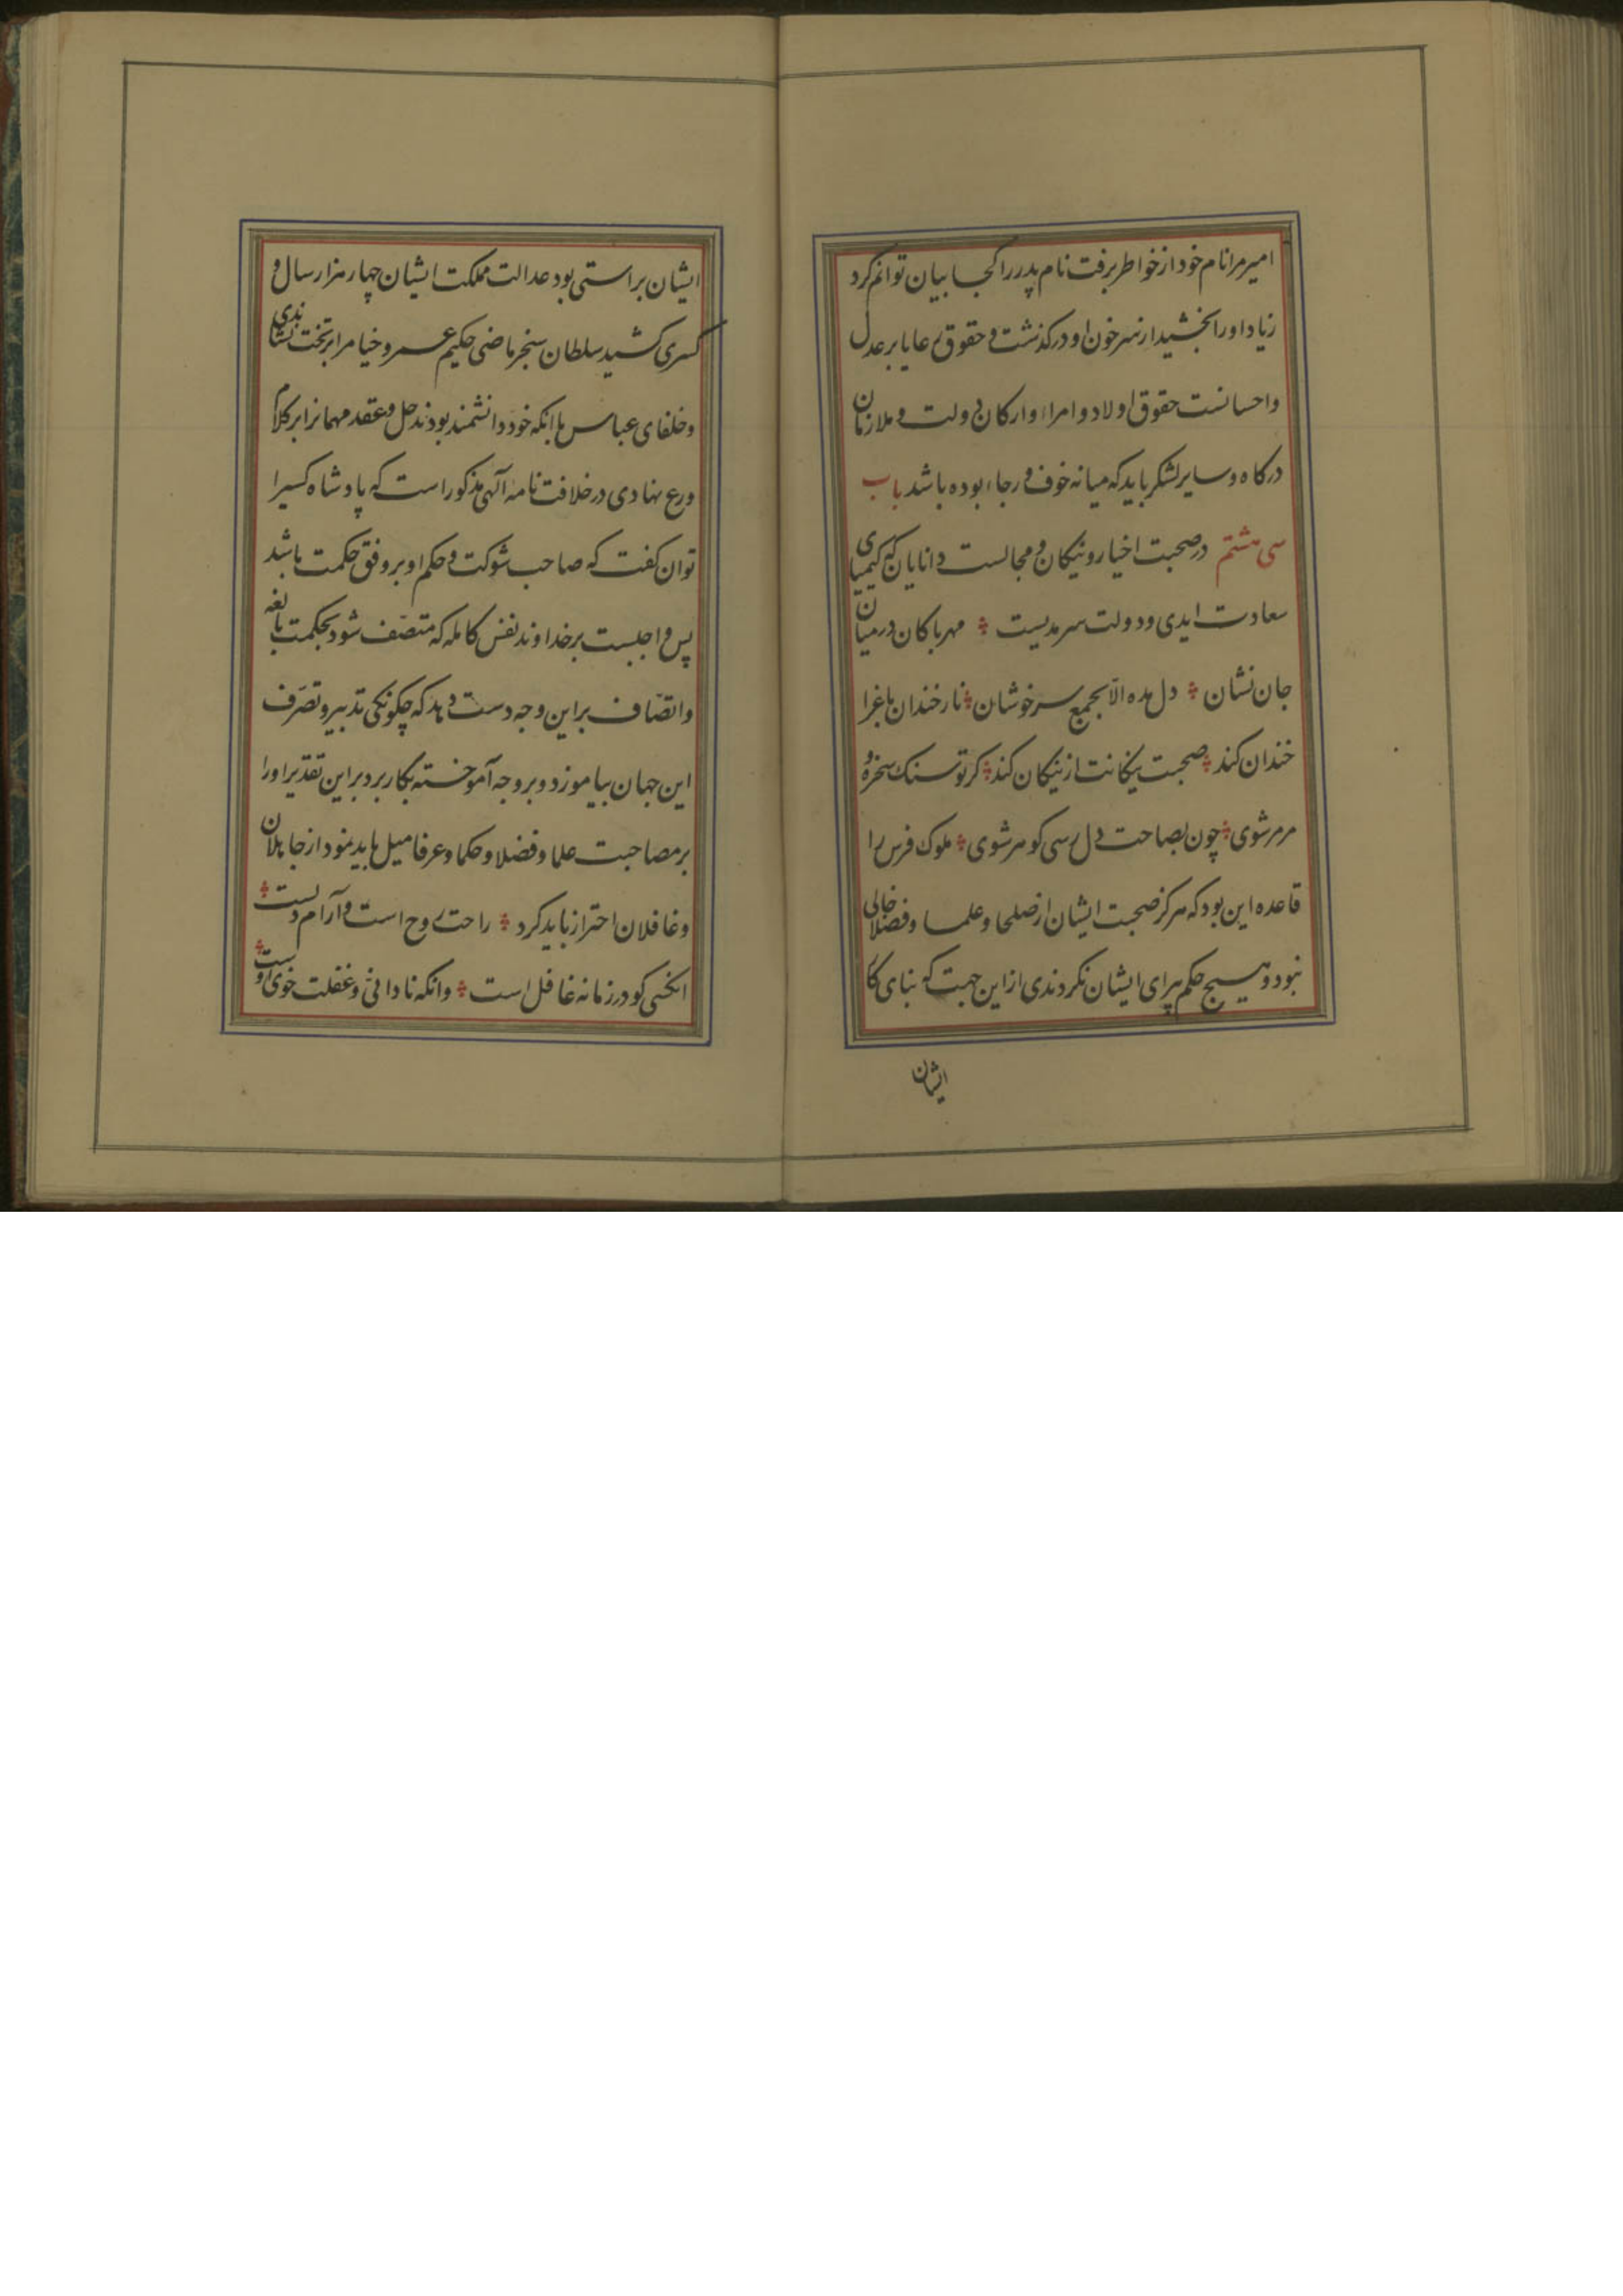 امیر مرا نام خود از خواطر برفت نام پدر را کجا بیان توانم کرد
زیاد او را بخشید از سر خون او درکذشت و حقوق رعایا بر عدل
و احسانست حقوق اولاد و امراء و ارکان دولت و ملازمان
درکاه و سایر لشکر باید که میانه خوف و رجاء بوده باشد باب
سی هشتم در صحبت اخیار و نیکان و مجالست دانایان که کیمیای
سعادت ابدی و دولت سرمدیست مهر پاکان در میان
جان نشان دل مده الا بجمع سرخوشان نار خندان باغ را
خندان کند صحبت نیکانت از نیکان کند کر تو سنک صخره و
مرمر شوی چون بصاحت دل رسی کوهر شوی ملوک فرس را
قاعده این بود که هرکز صحبت ایشان از صلحا و علما و فضلا خالی
نبود و هیچ حکم برای ایشان نکردندی از این جهت که بنای کار
ایشان
ایشان براستی بود عدالت مملکت ایشان چهار هزار سال و
کسری کشید سلطان سنجر ماضی حکیم عمرو خیام را بر تخت نشاندی
و خلفای عباس با انکه خود دانشمند بودند حل و عقد مهمانرا بر کلام
ورع نهادی در خلافت نامهٔ آلهی مذکور است که پادشاه کسیرا
توان کفت که صاحب شوکت و حکم او بر وفق حکمت باشد
پس واجبست بر خداوند نفس کامله که متصف شود بحکمت بالغه
و اتصاف بر این وجه دست دهد که چکونکی تدبیر و تصرف
این جهان بیاموزد و بر وجه آموخته بکار برد بر این تقدیر او را
بر مصاحبت علما و فضلا و حکما و عرفا میل باید نمود از جاهلان
و غافلان احتراز باید کرد راحت روح است و آرام دلست
انکسی کو در زمانه غافل است وانکه نادانی و غفلت خوی اوست